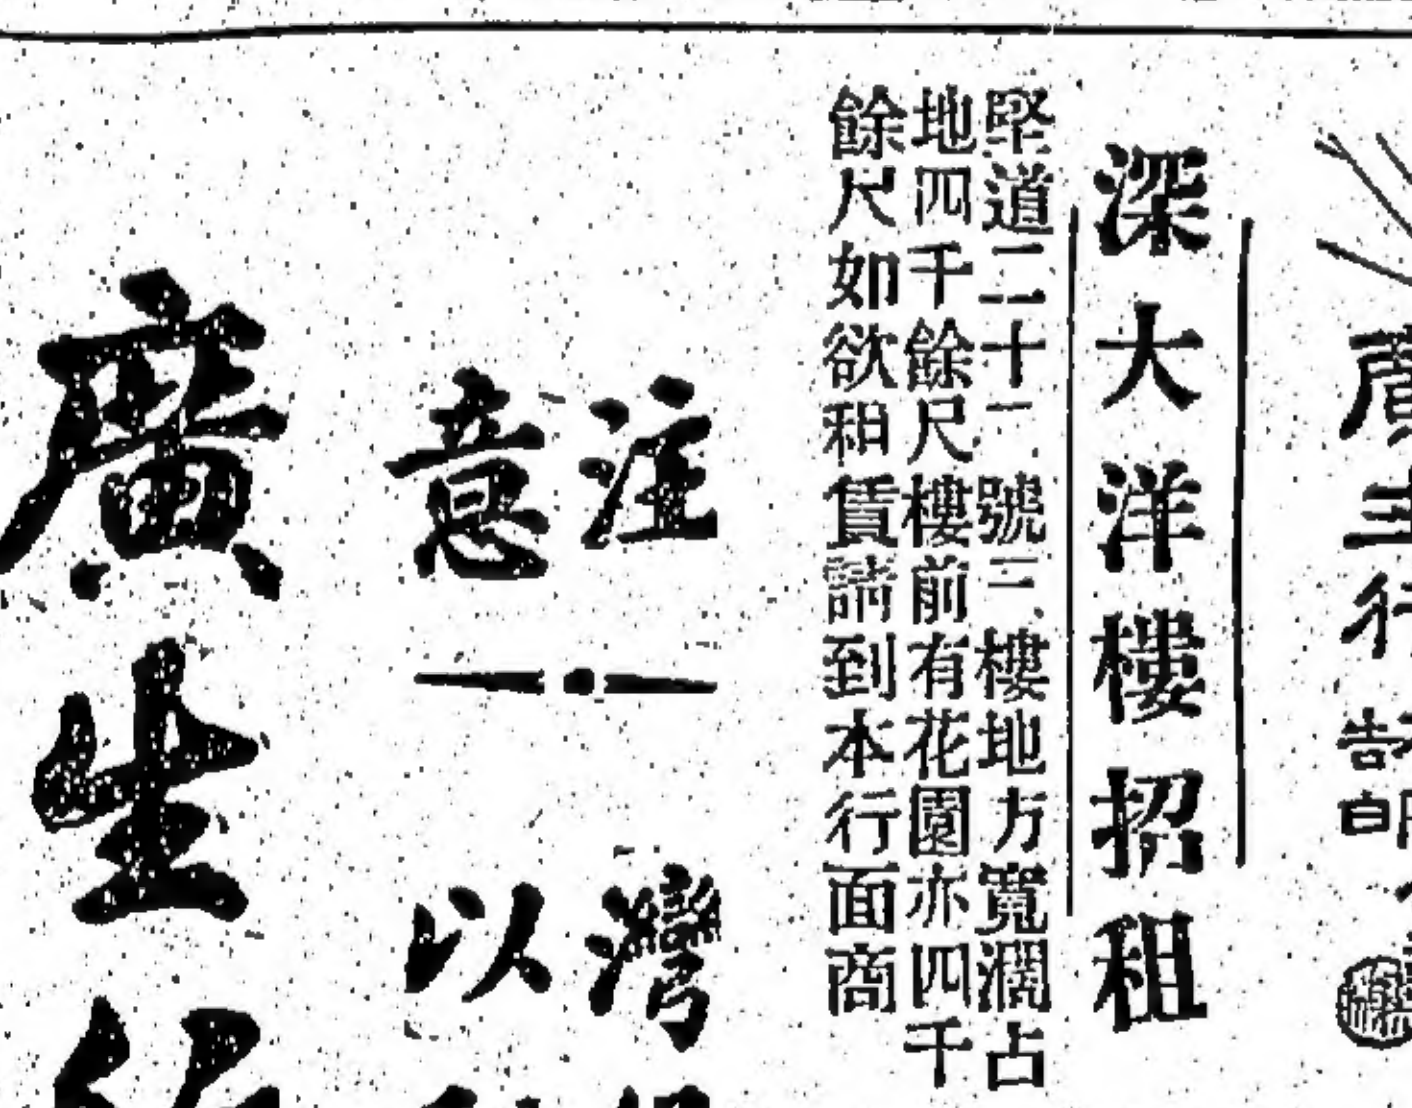 廣生行
告白
深大洋樓招租
堅道二十二號三樓地方寬濶占
地四千餘尺樓前有花園亦四千
餘尺如欲租賃請到本行面商
注灣
意以
廣生